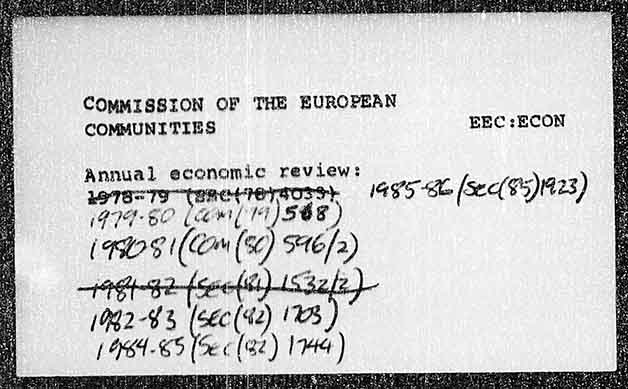 COMMISSION OF THE EUROPEAN
COMMUNITIES
EEC:ECON
Annual economic review:
1978-79 (SEC(78)4033)
1985-86 (SEC(85)1923)
1979-80 (COM(79)568)
1980-81 (COM(80) 596/2)
1981-82 (SEC(81) 1532/2)
1982-83 (SEC(82) 1703)
1984-85 (SEC(82) 1744)